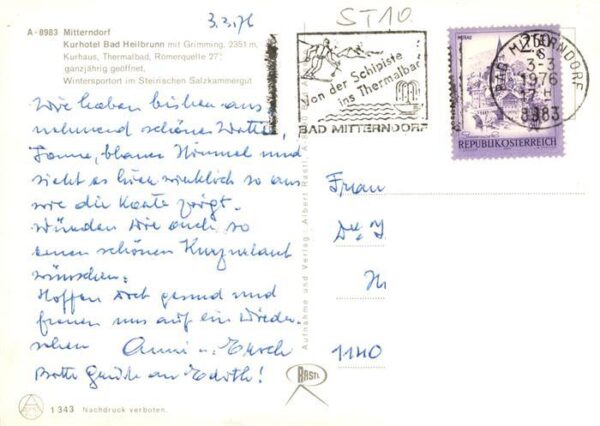 3.3.76
ST10.
A - 8983 Mitterndorf
Kurhotel Bad Heilbrunn mit Grimming, 2351 m,
Kurhaus, Thermalbad, Römerquelle 27°
ganzjährig geöffnet,
Wintersportort im Steirischen Salzkammergut
Wir haben bisher aus-
nehmend schönes Wetter,
Sonne, blauer Himmel und
sieht es hier wirklich so aus
wie die Karte zeigt.
Würden Dir auch so
einen schönen Kurzurlaub
wünschen.
Hoffen Dich gesund und
freuen uns auf ein Wieder-
sehen Anni u.
Bitte Grüße an Edith!
Von der Schipiste
ins Thermalbad
BAD MITTERNDORF
2.50
S
REPUBLIK ÖSTERREICH
BAD MITTERNDORF
3.-3.
1976
8983
Frau
1140
Aufnahme und Verlag: Albert Rastl, A
RASTL
1 343 Nachdruck verboten.